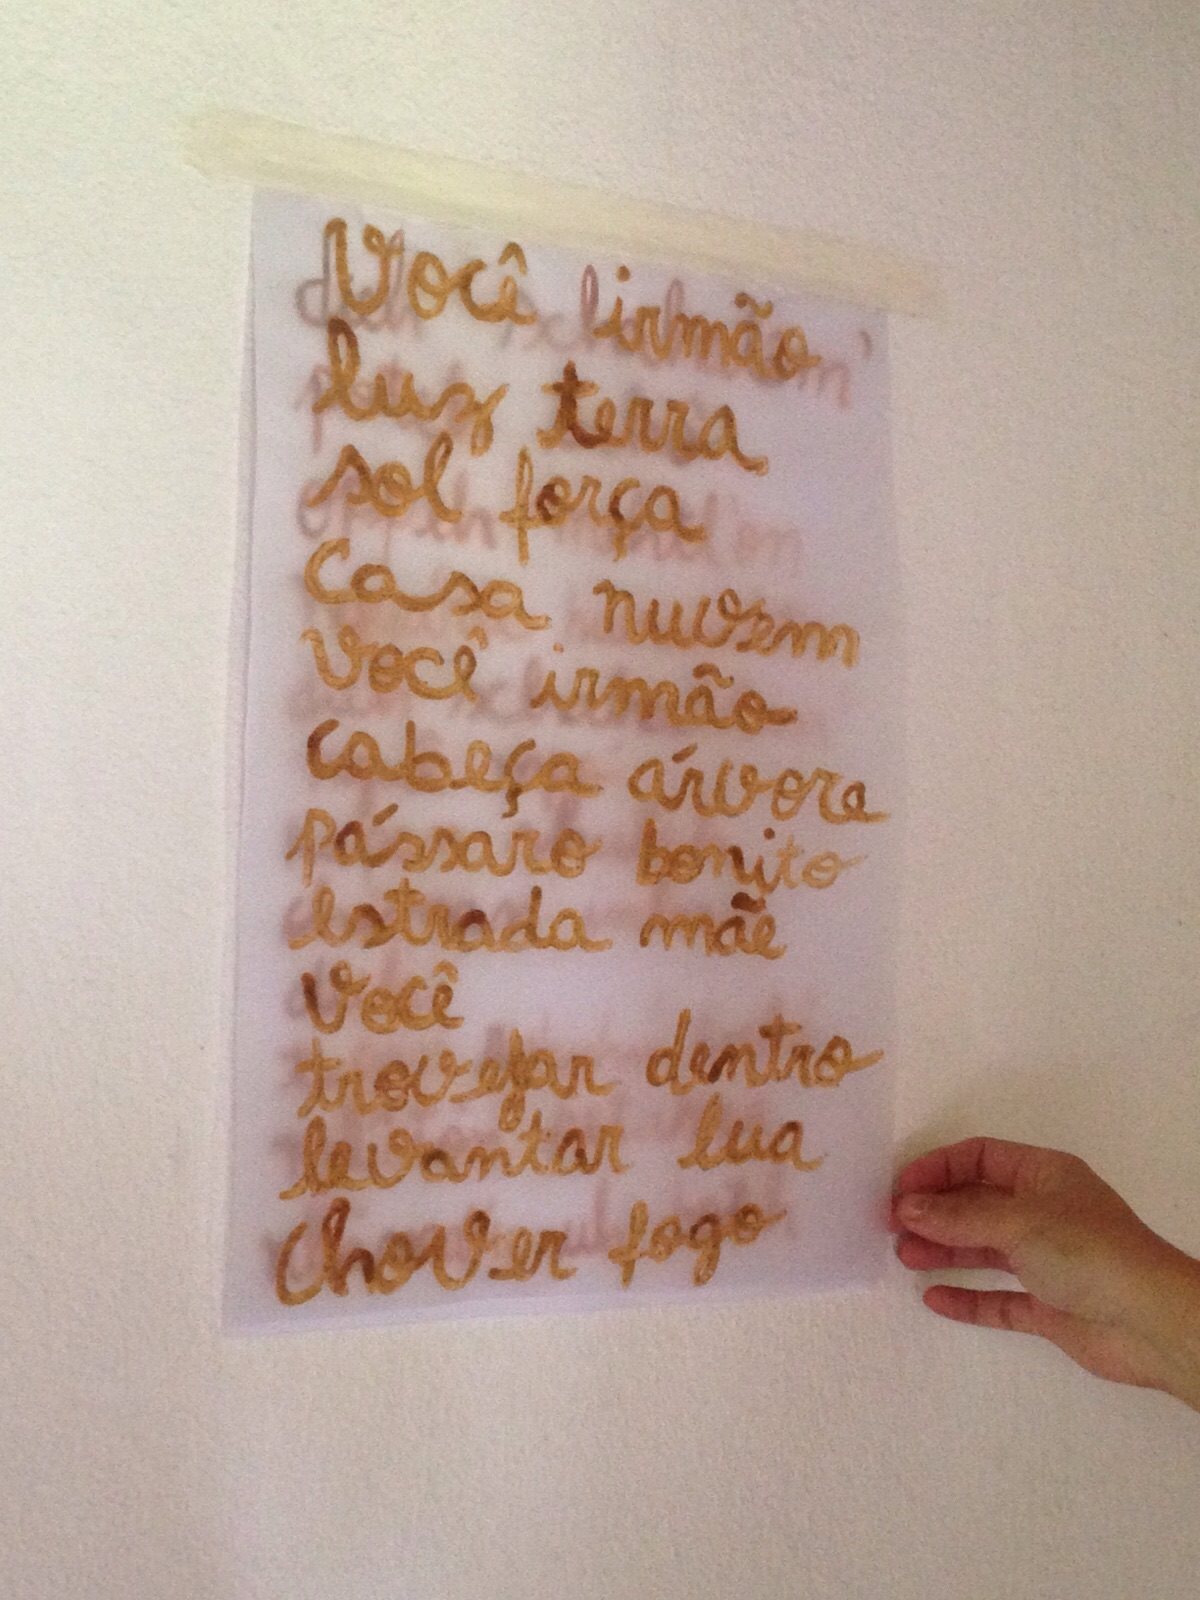 Você irmão
luz terra
sol força
Casa nuvem
você irmão
cabeça árvore
pássaro bonito
estrada mãe
você
trovejar dentro
levantar lua
chover fogo